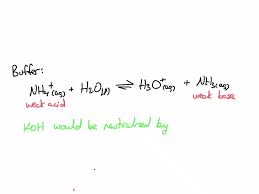 Buffer:
NH₄⁺(aq) + H₂O(l) ⇌ H₃O⁺(aq) + NH₃(aq)
weak acid weak base
KOH would be neutralised by